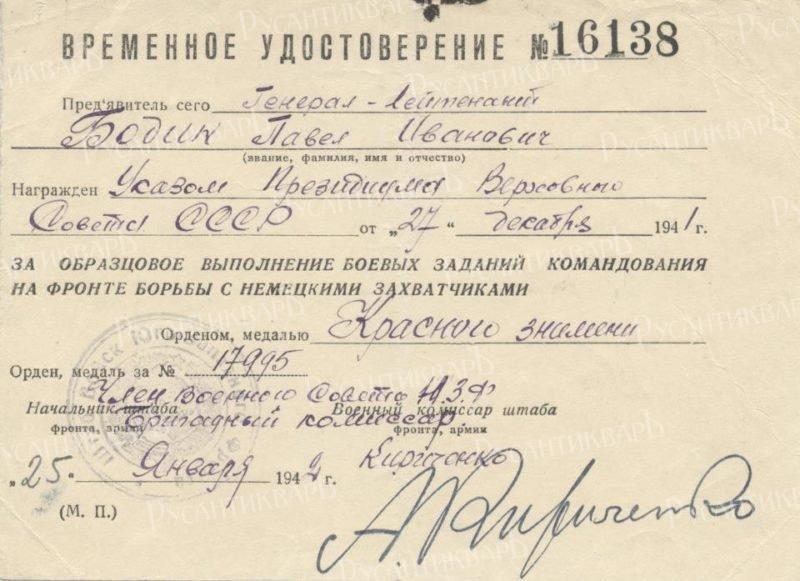 ВРЕМЕННОЕ УДОСТОВЕРЕНИЕ №16138
Пред'явитель сего Генерал-Лейтенант
Бодин Павел Иванович
(звание, фамилия, имя и отчество)
Награжден Указом Президиума Верховного
Совета СССР от „27" декабря 1941г.
ЗА ОБРАЗЦОВОЕ ВЫПОЛНЕНИЕ БОЕВЫХ ЗАДАНИЙ КОМАНДОВАНИЯ
НА ФРОНТЕ БОРЬБЫ С НЕМЕЦКИМИ ЗАХВАТЧИКАМИ
Орденом, медалью Красного знамени
Орден, медаль за № 17995
Член Военного Совета Ю.З.Ф
Начальник штаба Военный комиссар штаба
Бригадный комиссар
фронта, армии фронта, армии
Кириченко
„25" Января 1942 г.
А.Кириченко
(М. П.)
РУСАНТИКВАРЪ